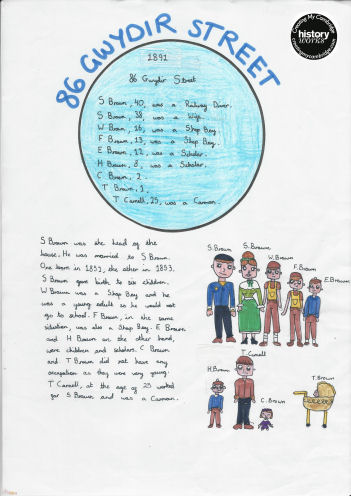 86 GWYDIR STREET
Creating My Cambridge
history
WORKS
creatingmycambridge.com
1891
86 Gwydir Street
S Brown, 40, was a Railway Driver.
S Brown, 38, was a Wife.
W Brown, 16, was a Shop Boy.
F Brown, 13, was a Shop Boy.
E Brown, 12, was a Scholar.
H Brown, 8, was a Scholar.
C Brown, 2.
T Brown, 1.
T Camell, 23, was a Carman.
S Brown was the head of the
house. He was married to S Brown.
One born in 1851, the other in 1853.
S Brown gave birth to six children.
W Brown was a Shop Boy and he
was a young adult so he would not
go to school. F Brown, in the same
situation, was also a Shop Boy. E Brown
and H Brown on the other hand,
were children and scholars. C Brown
and T Brown did not have any
occupation as they were very young.
T Camell, at the age of 23 worked
for S Brown and was a Carman.
S.Brown
S.Brown
W.Brown
F.Brown
E.Brown
H.Brown
T.Camell
C.Brown
T.Brown